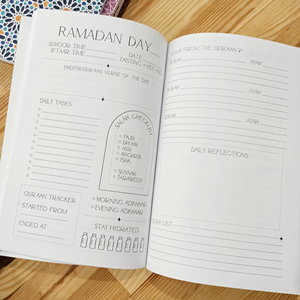 RAMADAN DAY
SUHOOR TIME
DATE
IFTAAR TIME
FASTING? YES
HADITH/QUR'AN VERSE OF THE DAY
DAILY TASKS
SALAH CHECKLIST
FAJR
DHUHR
ASR
MAGHRIB
ISHA
SUNNAH
TARAWEEH
QUR'AN TRACKER
STARTED FROM
ENDED AT
MORNING ADHKAAR
EVENING ADHKAAR
STAY HYDRATED
FROM THE QUR'AN
AYAH
AYAH
AYAH
AYAH
DAILY REFLECTIONS
LIST